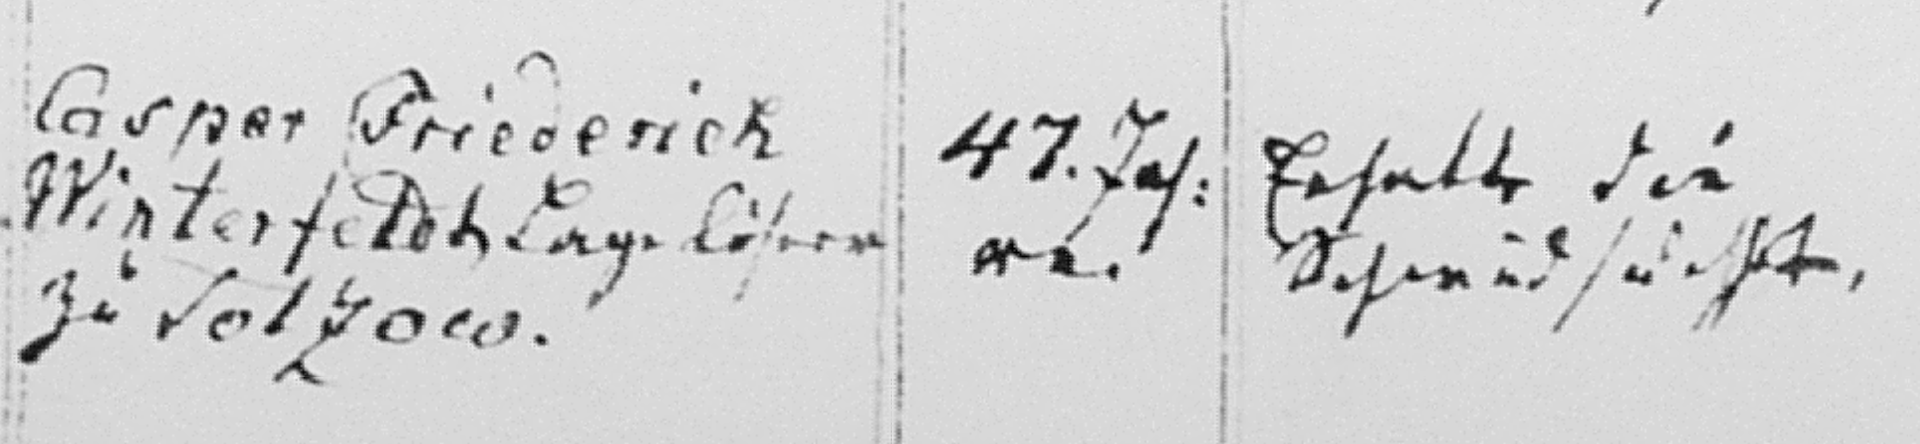 Casper Friederich
Winterfeldt, Tagelöhner
zu Solzow.
47. Jah:
re.
Er hatte die
Schwindsucht,